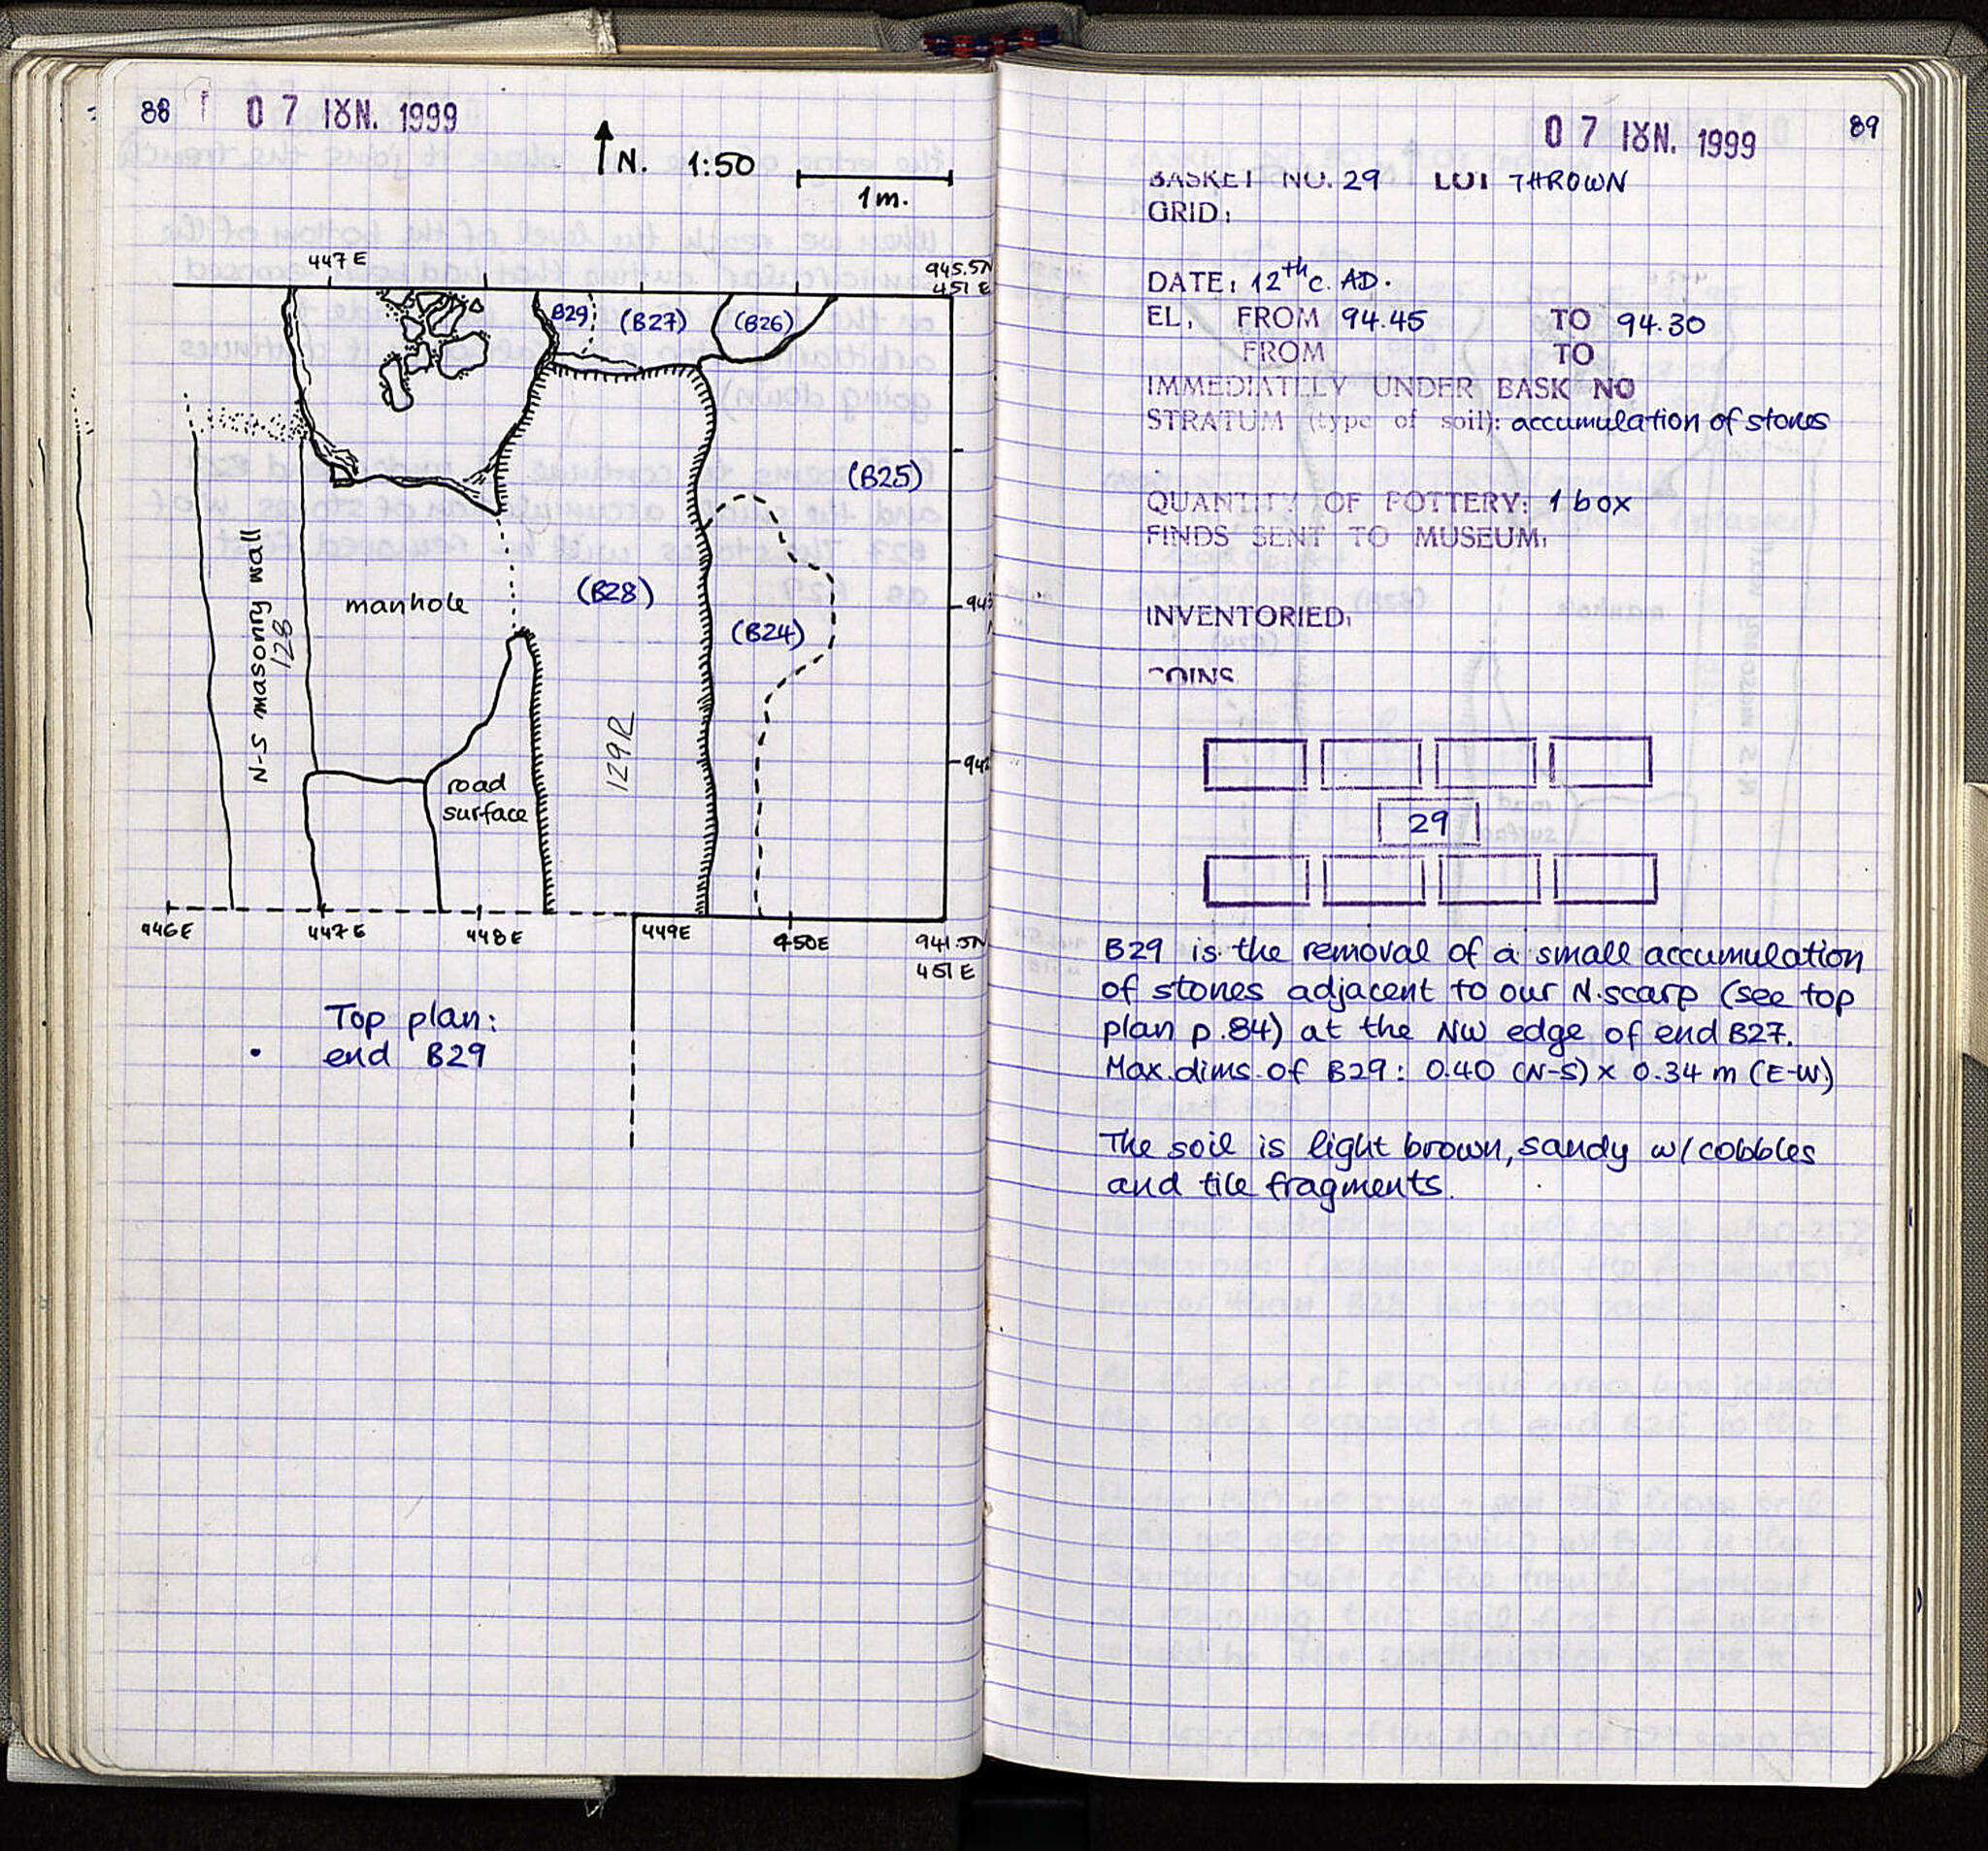 88
07 ΙΟΥΝ. 1999
N. 1:50
1m.
447E
945.5N
451E
B29
(B27)
(B26)
(B25)
N-S masonry wall
128
manhole
(B28)
943
(B24)
129R
942
road
surface
446E
447E
448E
449E
450E
941.5N
451E
Top plan:
end B29
07 ΙΟΥΝ. 1999
89
BASKET NO. 29 LOT THROWN
GRID:
DATE: 12th c. AD.
EL. FROM 94.45 TO 94.30
FROM TO
IMMEDIATELY UNDER BASK NO
STRATUM (type of soil): accumulation of stones
QUANTITY OF POTTERY: 1 box
FINDS SENT TO MUSEUM:
INVENTORIED:
COINS
29
B29 is the removal of a small accumulation
of stones adjacent to our N. scarp (see top
plan p. 84) at the NW edge of end B27.
Max. dims. of B29: 0.40 (N-S) x 0.34 m (E-W)
The soil is light brown, sandy w/ cobbles
and tile fragments.